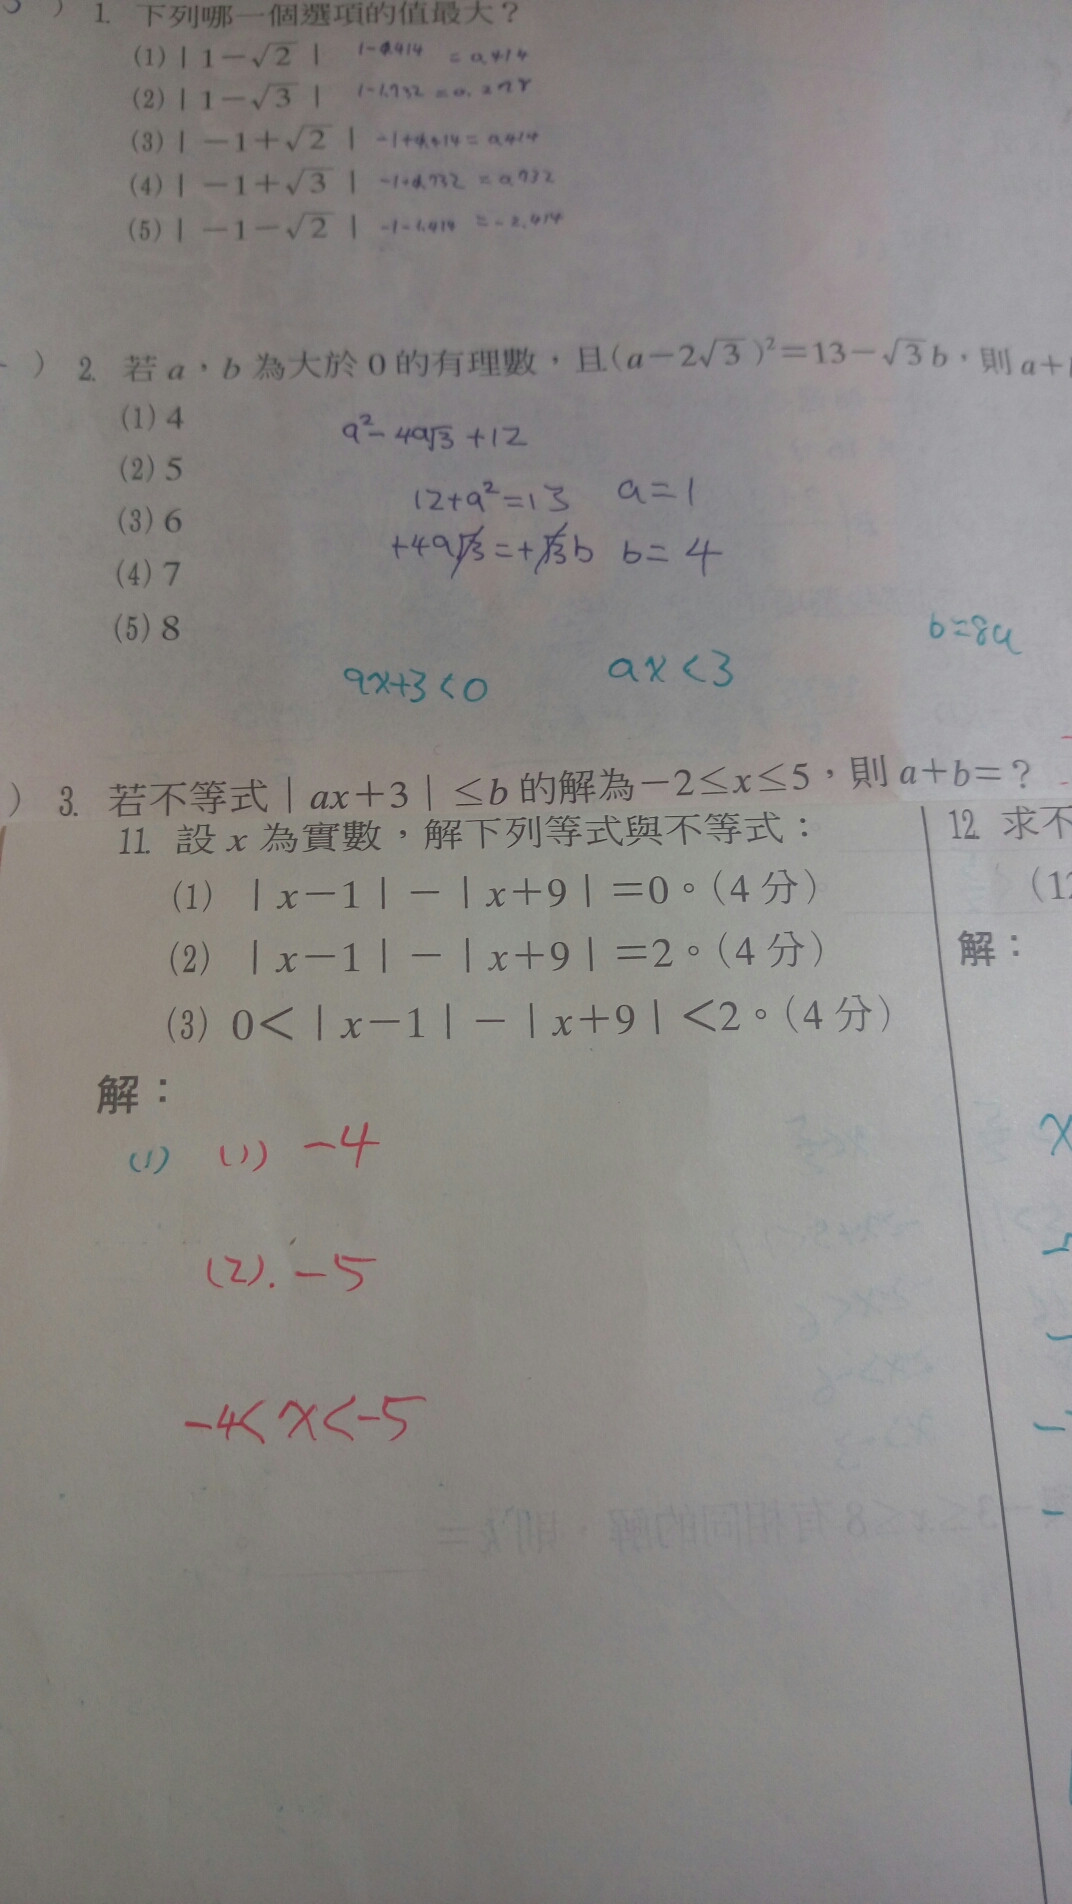 1. 下列哪一個選項的值最大？
(1)｜1－√2｜ = 0.414
(2)｜1－√3｜ 1-1.732
(3)｜－1＋√2｜ = 0.414
(4)｜－1＋√3｜ = 0.732
(5)｜－1－√2｜ -1-1.414 = -2.414
) 2. 若 a，b 為大於 0 的有理數，且(a－2√3)²＝13－√3b，則 a＋
(1) 4
a²-4a√3+12
(2) 5
12+a²=13 a=1
(3) 6
+4a√3=+√3b b=4
(4) 7
(5) 8
b=8a
ax+3<0 ax<3
) 3. 若不等式｜ax＋3｜≤b 的解為－2≤x≤5，則 a＋b＝？
11. 設 x 為實數，解下列等式與不等式：
(1) ｜x－1｜－｜x＋9｜＝0。(4 分)
(2) ｜x－1｜－｜x＋9｜＝2。(4 分)
(3) 0＜｜x－1｜－｜x＋9｜＜2。(4 分)
解：
(1) (1) -4
(2). -5
-4< x<-5
12. 求不
(1
解：
x